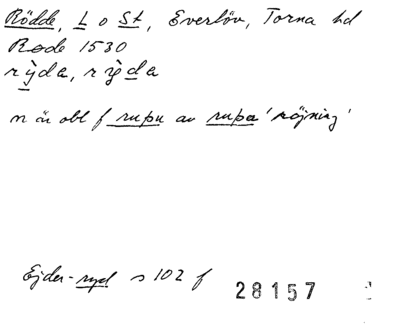 Rödde, L o St, Everlöv, Torna hd
Røde 1530
rỳda, rỳda
n är obl f rupu av rupa 'röjning'
Ejder-ryd s 102 f
28157